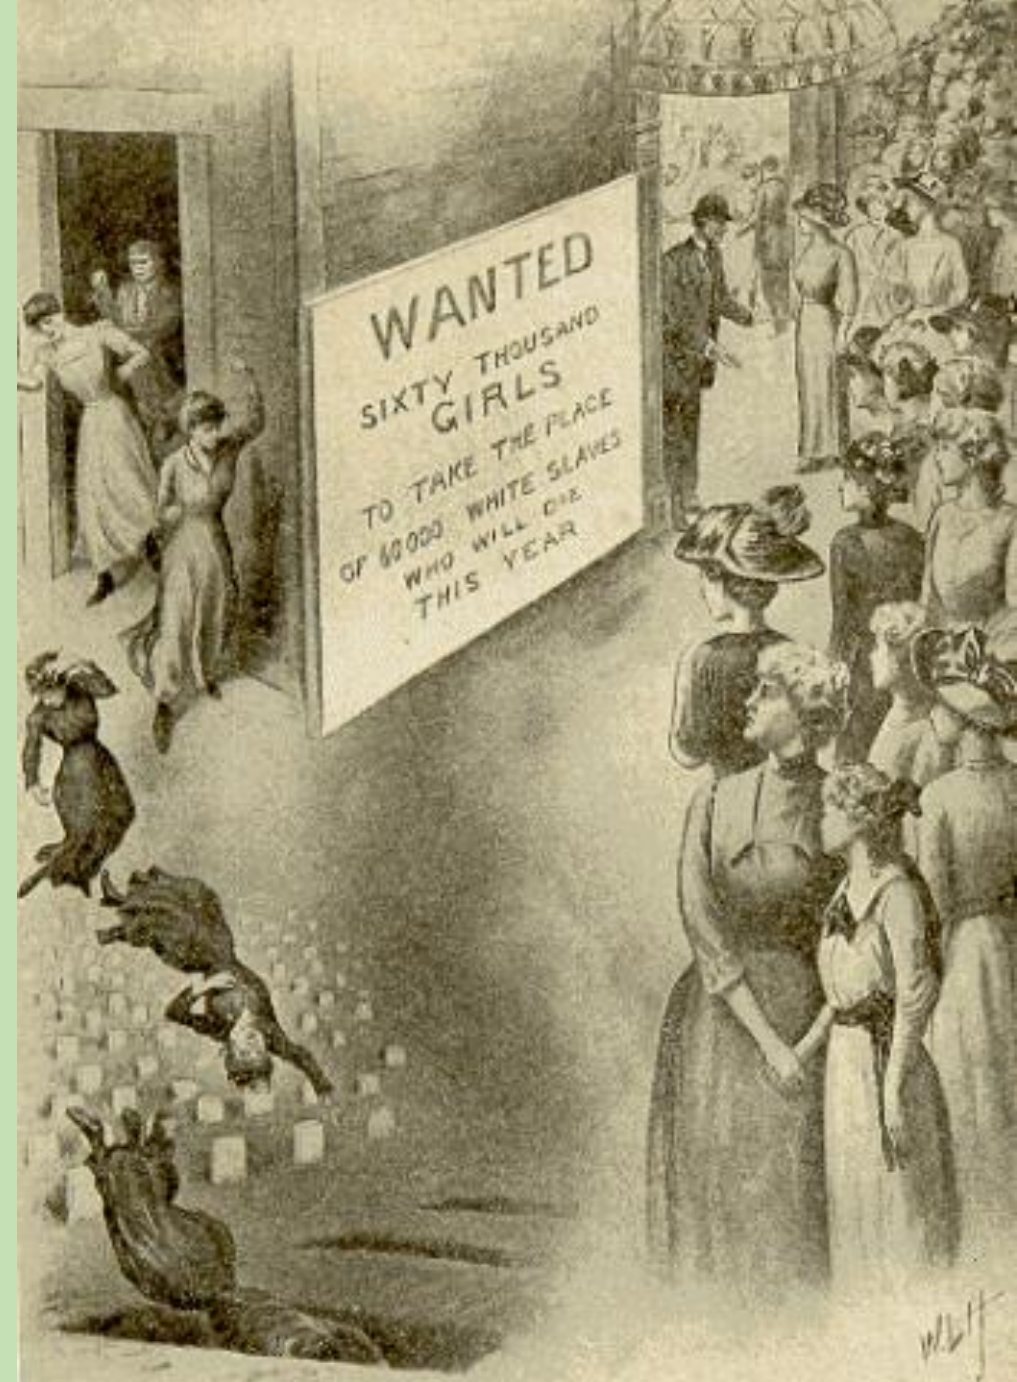 WANTED
SIXTY THOUSAND
GIRLS
TO TAKE THE PLACE
OF 60000 WHITE SLAVES
WHO WILL DIE
THIS YEAR